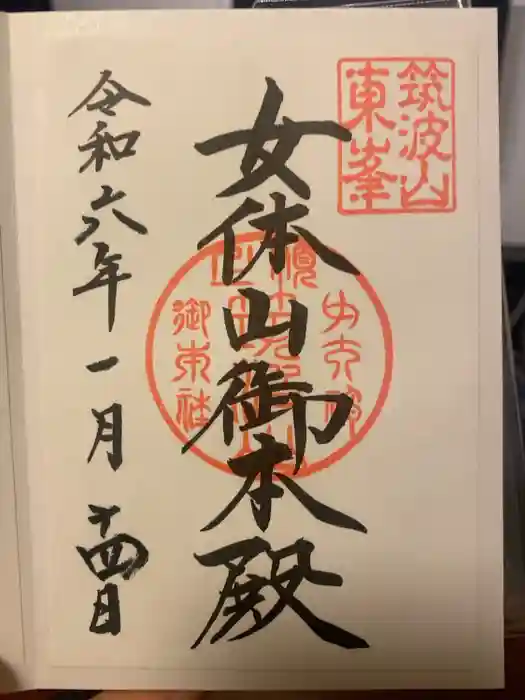 筑波山
東峯
女体山御本殿
令和六年一月十四日